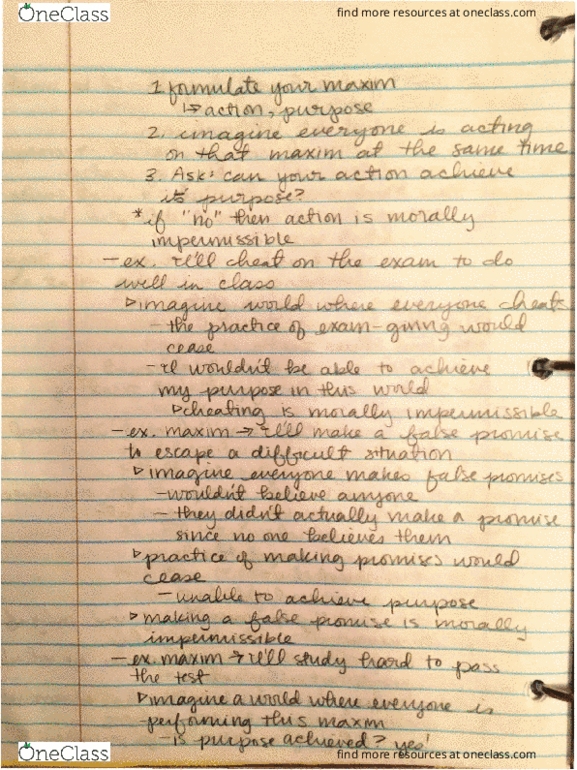 OneClass
find more resources at oneclass.com
1. formulate your maxim
↳ action, purpose
2. imagine everyone is acting
on that maxim at the same time
3. Ask: can your action achieve
its purpose?
* if "no" then action is morally
impermissible
- ex. I'll cheat on the exam to do
well in class
▹ imagine world where everyone cheats
- the practice of exam-giving would
cease
- I wouldn't be able to achieve
my purpose in this world
▹ cheating is morally impermissible
- ex. maxim → I'll make a false promise
to escape a difficult situation
▹ imagine everyone makes false promises
- wouldn't believe anyone
- they didn't actually make a promise
since no one believes them
▹ practice of making promises would
cease
- unable to achieve purpose
▹ making a false promise is morally
impermissible
- ex. maxim → I'll study hard to pass
the test
▹ imagine a world where everyone is
performing this maxim
- is purpose achieved? yes!
OneClass
find more resources at oneclass.com